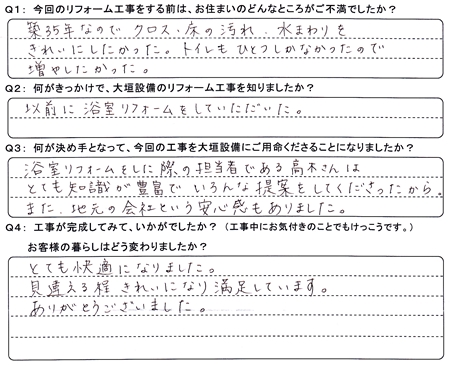 Q1: 今回のリフォーム工事をする前は、お住まいのどんなところがご不満でしたか？
築35年なので クロス・床の汚れ、水まわりを
きれいにしたかった。トイレもひとつしかなかったので
増やしたかった。
Q2: 何がきっかけで、大垣設備のリフォーム工事を知りましたか？
以前に浴室リフォームをしていただいた。
Q3: 何が決め手となって、今回の工事を大垣設備にご用命くださることになりましたか？
浴室リフォームをした際の担当者である高木さんは
とても知識が豊富で いろんな提案をしてくださったから。
また、地元の会社という安心感もありました。
Q4: 工事が完成してみて、いかがでしたか？（工事中にお気付きのことでもけっこうです。）
お客様の暮らしはどう変わりましたか？
とても快適になりました。
見違える程 きれいになり満足しています。
ありがとうございました。